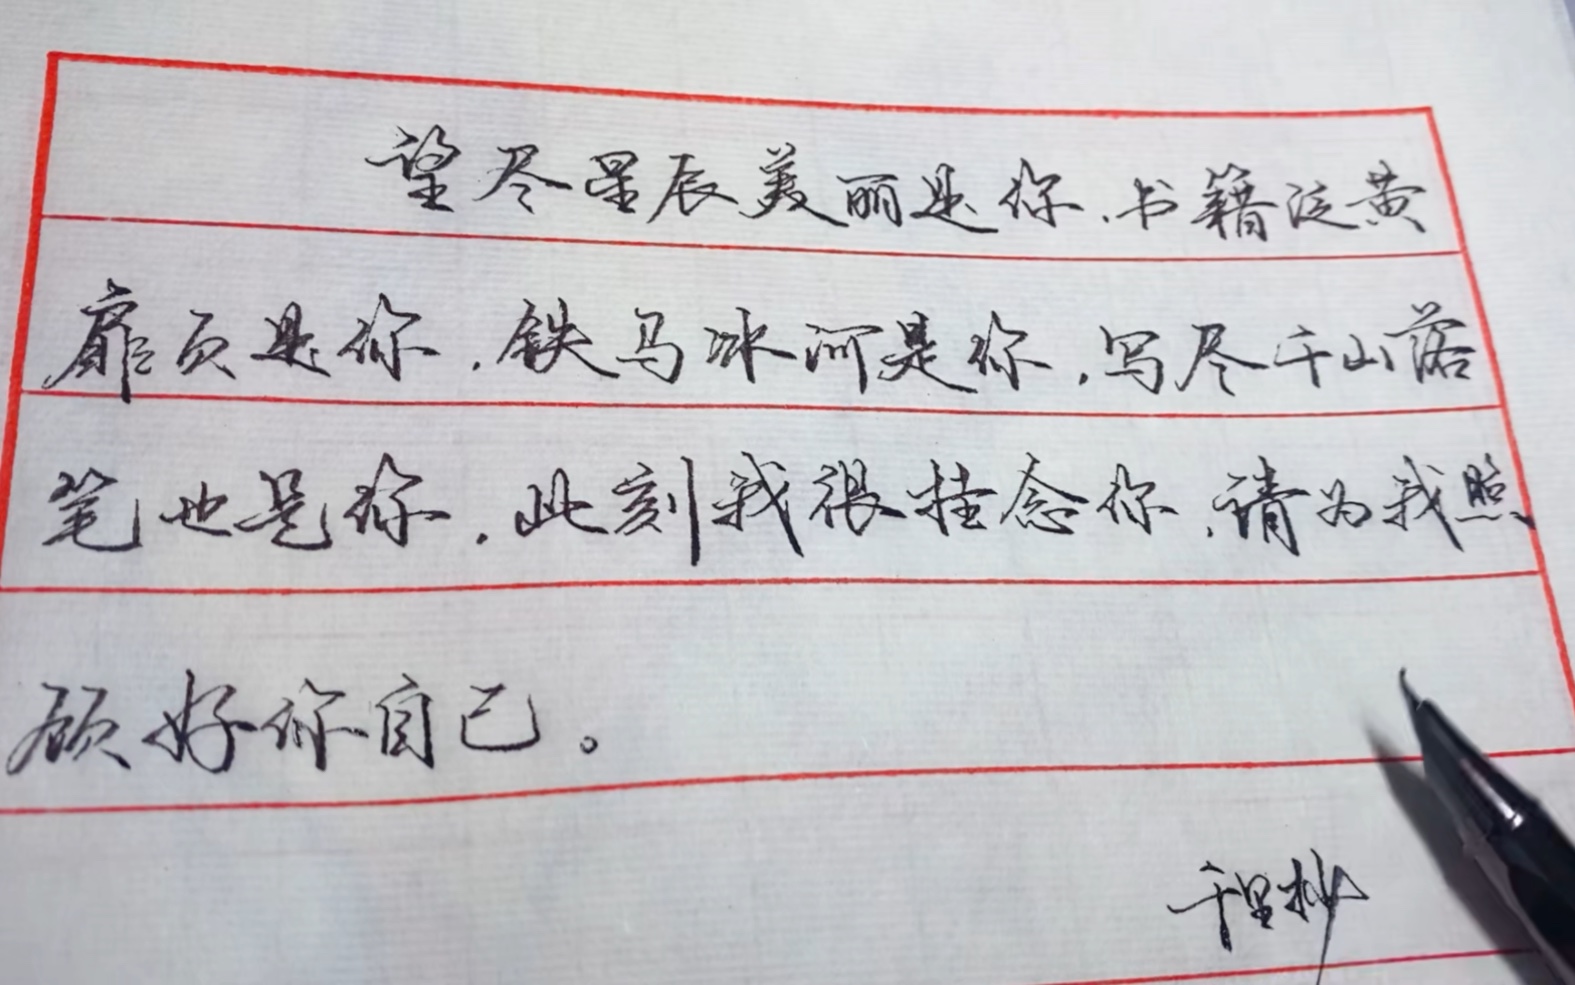 望尽星辰美丽是你，书籍泛黄
扉页是你，铁马冰河是你，写尽千山落
笔也是你，此刻我很挂念你，请为我照
顾好你自己。
千里抄